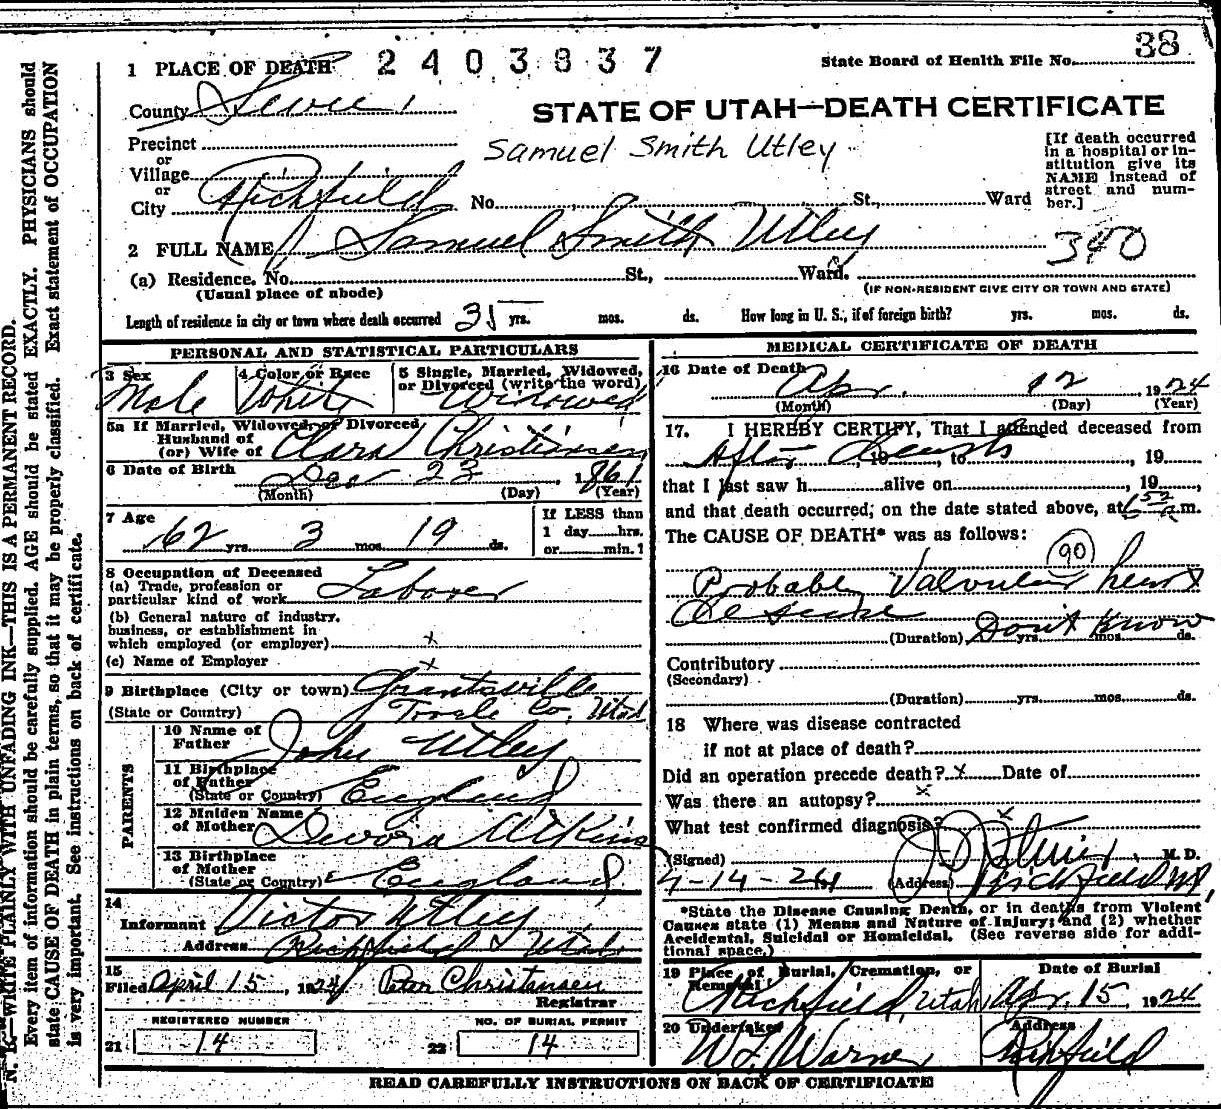 1 PLACE OF DEATH 2403837 State Board of Health File No. 38
County Sevier
STATE OF UTAH—DEATH CERTIFICATE
Precinct
or
Village
or
City Richfield No. St., Ward
Samuel Smith Utley
[If death occurred
in a hospital or in-
stitution give its
NAME instead of
street and num-
ber.]
2 FULL NAME Samuel Smith Utley 340
(a) Residence. No. St., Ward.
(Usual place of abode) (IF NON-RESIDENT GIVE CITY OR TOWN AND STATE)
Length of residence in city or town where death occurred 35 yrs. mos. ds. How long in U. S., if of foreign birth? yrs. mos. ds.
PERSONAL AND STATISTICAL PARTICULARS
3 Sex
Male
4 Color or Race
White
5 Single, Married, Widowed,
or Divorced (write the word)
Widowed
5a If Married, Widowed, or Divorced
Husband of
(or) Wife of Clara Christiansen
6 Date of Birth
Dec 23, 1861
(Month) (Day) (Year)
7 Age
62 yrs. 3 mos. 19 ds.
If LESS than
1 day hrs.
or min.?
8 Occupation of Deceased
(a) Trade, profession or
particular kind of work Laborer
(b) General nature of industry,
business, or establishment in
which employed (or employer) x
(c) Name of Employer x
9 Birthplace (City or town) Grantsville
(State or Country) Tooele Co, Utah
PARENTS
10 Name of
Father John Utley
11 Birthplace
of Father
(State or Country) England
12 Maiden Name
of Mother Devora Atkins
13 Birthplace
of Mother
(State or Country) England
14
Informant Victor Utley
Address Richfield Utah
15
Filed April 15, 1924 Peter Christansen
Registrar
REGISTERED NUMBER
21 14
NO. OF BURIAL PERMIT
22 14
MEDICAL CERTIFICATE OF DEATH
16 Date of Death Apr. 12 1924
(Month) (Day) (Year)
17. I HEREBY CERTIFY, That I attended deceased from
After death, 19 , to , 19
that I last saw h alive on , 19 ,
and that death occurred, on the date stated above, at 6 52 a.m.
The CAUSE OF DEATH* was as follows:
90
Probable Valvular heart
disease
(Duration) Don't Know yrs. mos. ds.
Contributory
(Secondary)
(Duration) yrs. mos. ds.
18 Where was disease contracted
if not at place of death?
Did an operation precede death? x Date of
Was there an autopsy? x
What test confirmed diagnosis? x
(Signed) , M. D.
4-14-24 (Address) Richfield
*State the Disease Causing Death, or in deaths from Violent
Causes state (1) Means and Nature of Injury; and (2) whether
Accidental, Suicidal or Homicidal. (See reverse side for addi-
tional space.)
19 Place of Burial, Cremation, or
Removal
Richfield, Utah
Date of Burial
Apr. 15, 1924
20 Undertaker
W L Warner
Address
Richfield
READ CAREFULLY INSTRUCTIONS ON BACK OF CERTIFICATE
N. B.—WRITE PLAINLY WITH UNFADING INK—THIS IS A PERMANENT RECORD.
Every item of information should be carefully supplied. AGE should be stated EXACTLY. PHYSICIANS should
state CAUSE OF DEATH in plain terms, so that it may be properly classified. Exact statement of OCCUPATION
is very important. See instructions on back of certificate.